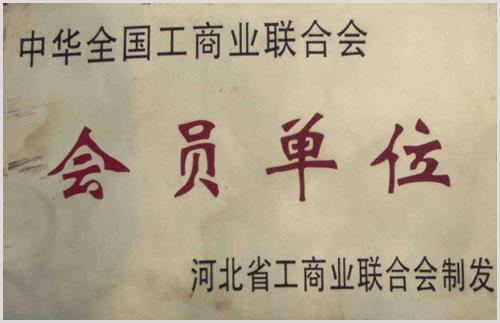 中华全国工商业联合会
会员单位
河北省工商业联合会制发